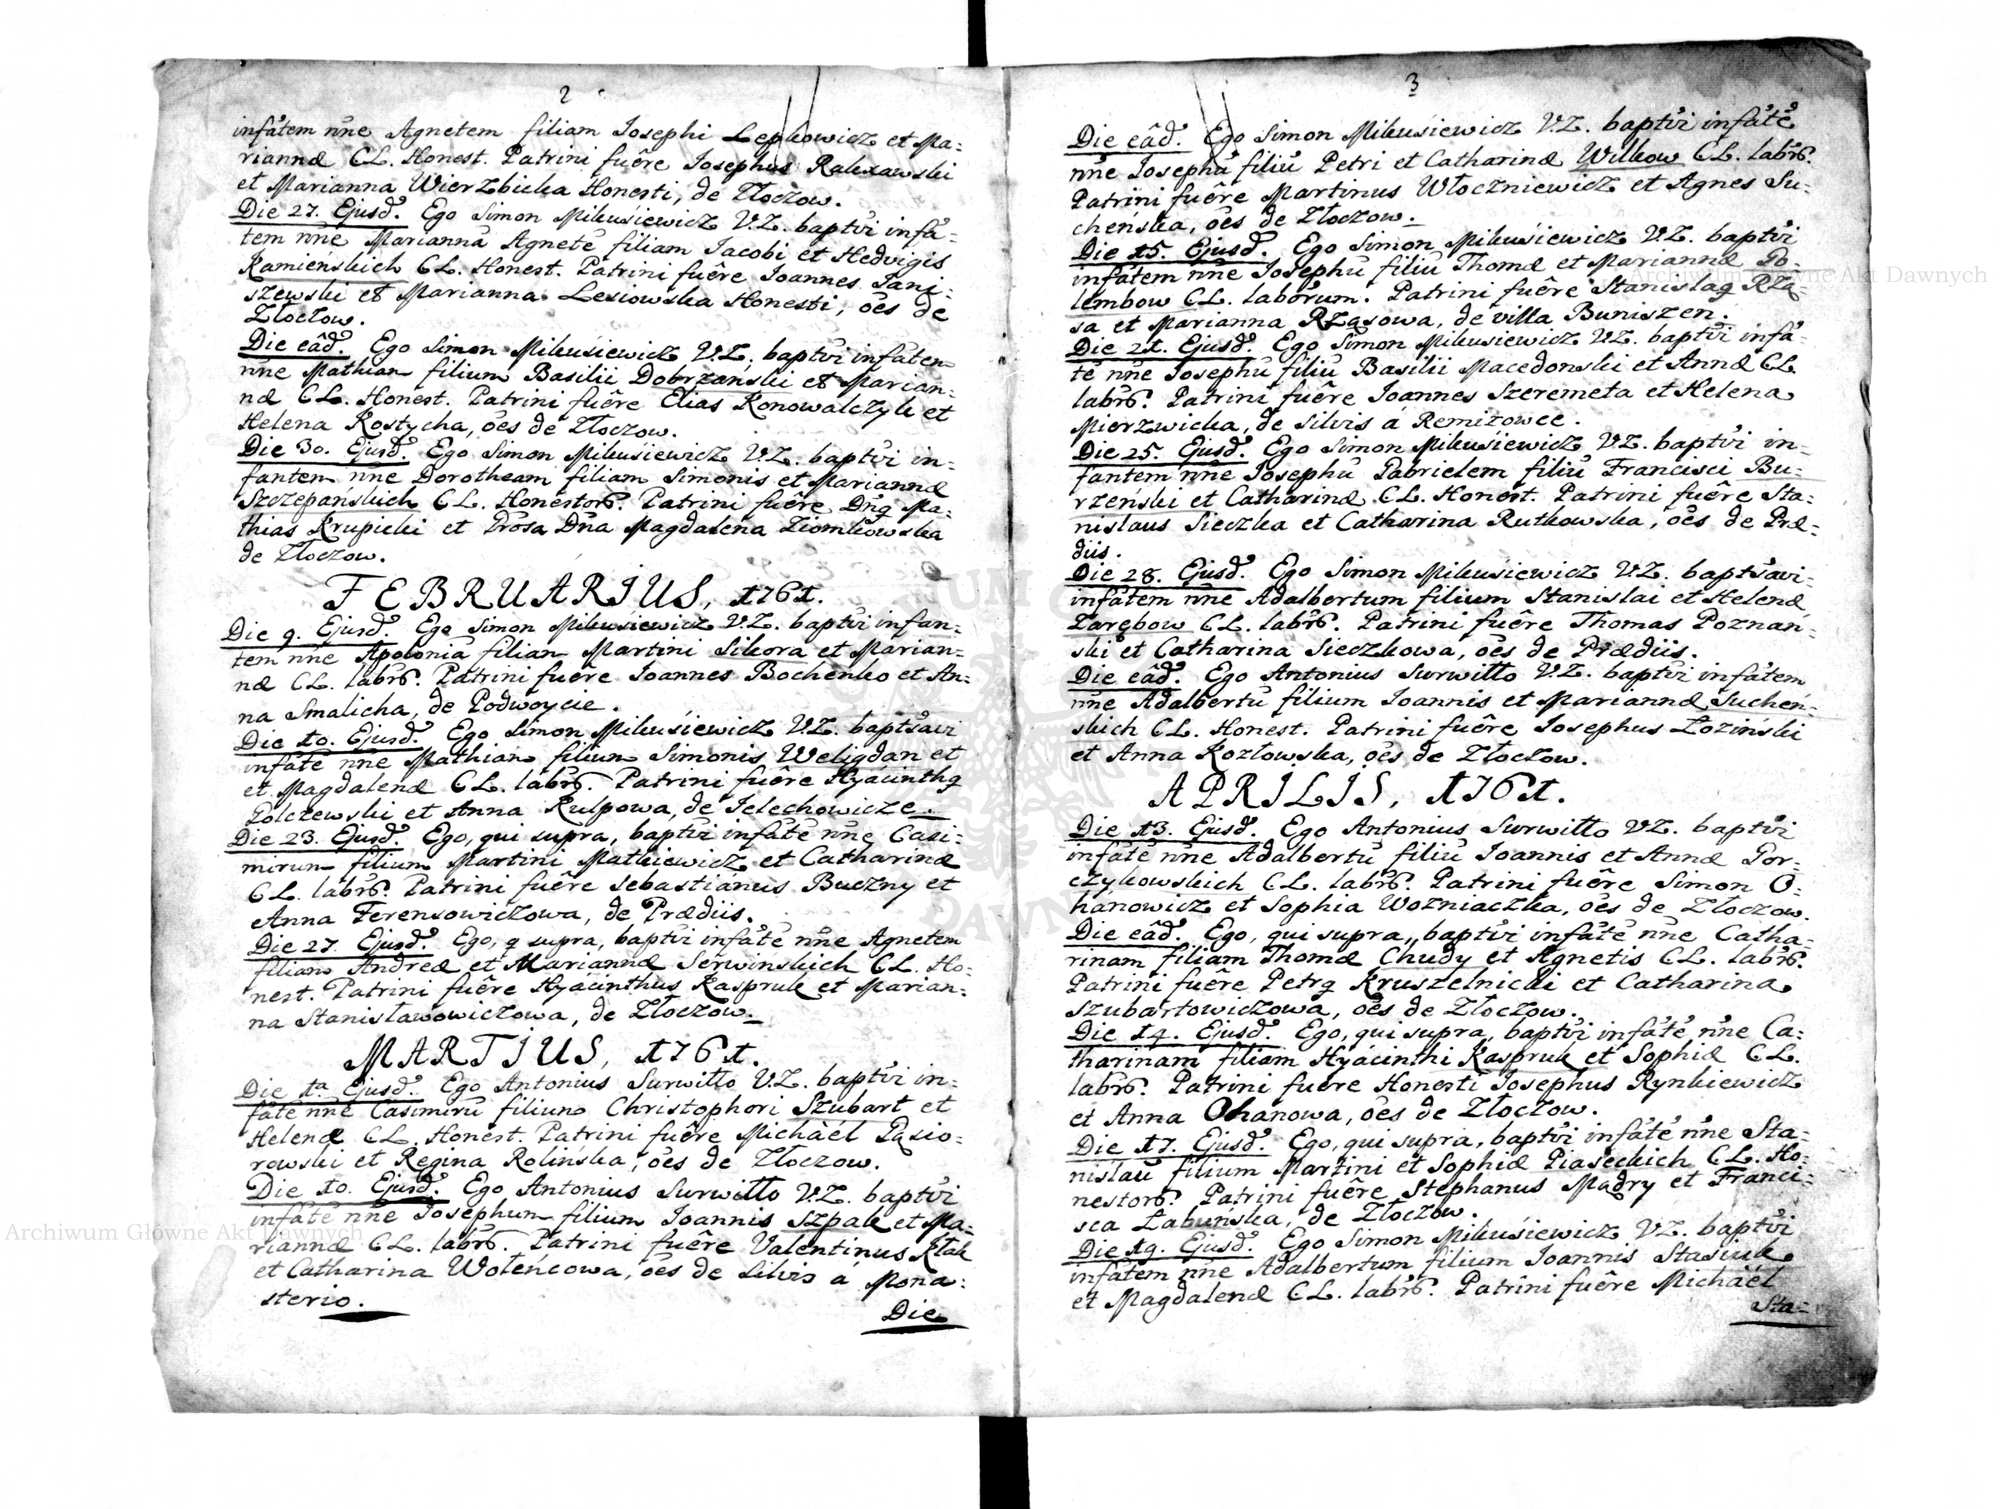 2
infãtem nñe Agnetem filiam Josephi Lepkowicz et Ma:
riannæ CL. Honest. Patrini fuêre Josephus Ralexawski
et Marianna Wierzbicka Honesti, de Złoczow.
Die 27. Ejusd. Ego Simon Mikusiewicz V.Z. baptvi infã:
tem nñe Mariannã Agnetẽ filiam Jacobi et Hedvigis
Kamieńskich CL. Honest. Patrini fuêre Joannes Jani:
szewski et Marianna Lesiowska Honesti, oẽs de
Złoczow.
Die eâd. Ego Simon Mikusiewicz V.Z. baptvi infãtem
nñe Mathiam filium Basilii Dobrzański et Marian:
næ CL. Honest. Patrini fuêre Elias Konowalczyk et
Helena Kostycha, oẽs de Złoczow.
Die 30. Ejusd. Ego Simon Mikusiewicz V.Z. baptvi in:
fantem nñe Dorotheam filiam Simonis et Mariannæ
Szczepanskich CL. Honestor. Patrini fuêre Dñg Ma:
thias Krupicki et Grosa Dña Magdalena Ziomkowska
de Złoczow.
FEBRUARIUS, 1761.
Die 9. Ejusd. Ego Simon Mikusiewicz V.Z. baptvi infan:
tem nñe Apolonia filiam Martini Sikora et Marian:
næ CL. labr. Patrini fuêre Joannes Bochenko et An:
na Smalicha, de Podwoycie.
Die 10. Ejusd. Ego Simon Mikusiewicz V.Z. baptsavi
infãtẽ nñe Mathiam filium Simonis Weligdan et
et Magdalenæ CL. labr. Patrini fuêre Hyacinthg
Golczewski et Anna Kulpowa, de Jelechowicze.
Die 23. Ejusd. Ego, qui supra, baptvi infãtẽ nñe Casi:
mirum filium Martini Matkiewicz et Catharinæ
CL. labr. Patrini fuêre Sebastianus Buczny et
Anna Ferensowiczowa, de Prædiis.
Die 27. Ejusd. Ego, q supra, baptvi infãtẽ nñe Agnetem
filiam Andreæ et Mariannæ Serwinskich CL. Ho:
nest. Patrini fuêre Hyacinthus Kaspruk et Marian:
na Stanisławowiczowa, de Złoczow.
MARTIUS, 1761.
Die 1ª Ejusd. Ego Antonius Surwiłło V.Z. baptvi in:
fãtẽ nñe Casimirũ filium Christophori Szubart et
Helenæ CL. Honest. Patrini fuêre Michàél Gąsio:
rowski et Regina Rolińska, oẽs de Złoczow.
Die 10. Ejusd. Ego Antonius Surwiłło V.Z. baptvi
infãtẽ nñe Josephum filium Joannis Szpak et Ma:
riannæ CL. labr. Patrini fuêre Valentinus Ktak
et Catharina Wołencowa, oẽs de Silvis à Mona:
sterio.
Die
3
Die eâd. Ego Simon Mikusiewicz V.Z. baptvi infãtẽ
nñe Josephũ filiũ Petri et Catharinæ Wilkow CL. labr.
Patrini fuêre Martinus Włoczniewicz et Agnes Su:
cheńska, oẽs de Złoczow.
Die 15. Ejusd. Ego Simon Mikusiewicz V.Z. baptvi
infãtem nñe Josephũ filiũ Thomæ et Mariannæ Go:
lembow CL. laborum. Patrini fuêre Stanislag Rzą:
sa et Marianna Rząsowa, de villa Buniszen.
Die 21. Ejusd. Ego Simon Mikusiewicz V.Z. baptvi infã:
tẽ nñe Josephũ filiũ Basilii Macedonski et Annæ CL.
labr. Patrini fuêre Joannes Szeremeta et Helena
Mierzwicka, de Silvis à Remizowce.
Die 25. Ejusd. Ego Simon Mikusiewicz V.Z. baptvi in:
fantem nñe Josephũ Gabrielem filiũ Francisci Bu:
rzeński et Catharinæ CL. Honest. Patrini fuêre Sta:
nislaus Sieczka et Catharina Rutkowska, oẽs de Præ:
diis.
Die 28. Ejusd. Ego Simon Mikusiewicz V.Z. baptsavi
infãtem nñe Adalbertum filium Stanislai et Helenæ
Zarębow CL. labr. Patrini fuêre Thomas Poznań:
ski et Catharina Sieczkowa, oẽs de Prædiis.
Die eâd. Ego Antonius Surwiłło V.Z. baptvi infãtem
nñe Adalbertũ filium Joannis et Mariannæ Suchen:
skich CL. Honest. Patrini fuêre Josephus Łoziński
et Anna Kozłowska, oẽs de Złoczow.
APRILIS, 1761.
Die 13. Ejusd. Ego Antonius Surwiłło V.Z. baptvi
infãtẽ nñe Adalbertũ filiũ Joannis et Annæ Gor:
czykowskich CL. labr. Patrini fuêre Simon O:
hanowicz et Sophia Wozniaczka, oẽs de Złoczow.
Die eâd. Ego, qui supra, baptvi infãtẽ nñe Catha:
rinam filiam Thomæ Chudy et Agnetis CL. labr.
Patrini fuêre Petrg Kruszelnicki et Catharina
Szubartowiczowa, oẽs de Złoczow.
Die 14. Ejusd. Ego, qui supra, baptvi infãtẽ nñe Ca:
tharinam filiam Hyacinthi Kaspruk et Sophiæ CL.
labr. Patrini fuêre Honesti Josephus Rynkiewicz
et Anna Ohanowa, oẽs de Złoczow.
Die 17. Ejusd. Ego, qui supra, baptvi infãtẽ nñe Sta:
nislaũ filium Martini et Sophiæ Piaseckich CL. Ho:
nestor. Patrini fuêre Stephanus Mądry et Franci:
sca Łabuńska, de Złoczow.
Die 19. Ejusd. Ego Simon Mikusiewicz V.Z. baptvi
infãtem nñe Adalbertum filium Joannis Stasiuk
et Magdalenæ CL. labr. Patrini fuêre Michàél
Sta:
Archiwum Główne Akt Dawnych
Archiwum Główne Akt Dawnych